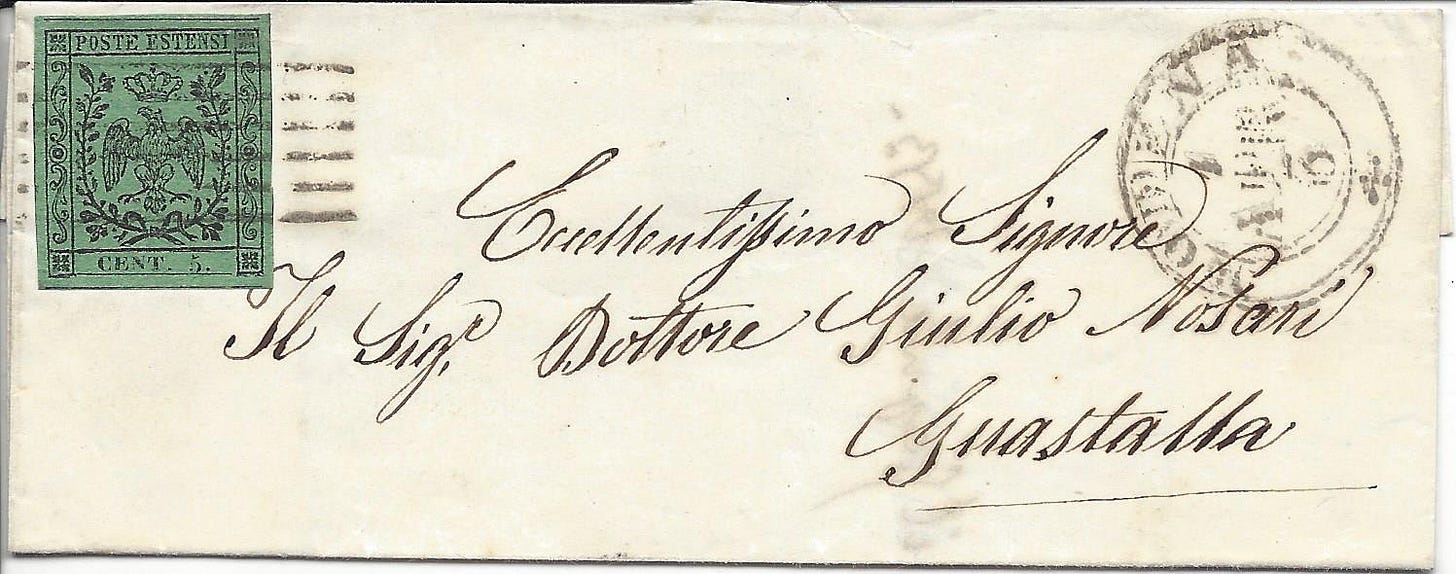 POSTE ESTENSI
CENT. 5.
MODENA
Eccellentissimo Signore
Il Sig.e Dottore Giulio Nosari
Guastalla